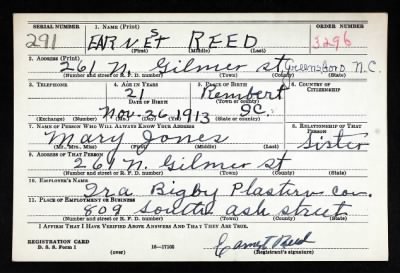 SERIAL NUMBER 1. NAME (Print) ORDER NUMBER
291 EARNEST REED 3296
(First) (Middle) (Last)
2. ADDRESS (Print)
261 N. Gilmer st Greensboro N.C.
(Number and street or R. F. D. number) (Town) (County) (State)
3. TELEPHONE 4. AGE IN YEARS 5. PLACE OF BIRTH 6. COUNTRY OF CITIZENSHIP
21 Rembert
DATE OF BIRTH (Town or county)
Nov. 26 1913 S.C.
(Exchange) (Number) (Mo.) (Day) (Yr.) (State or country)
7. NAME OF PERSON WHO WILL ALWAYS KNOW YOUR ADDRESS 8. RELATIONSHIP OF THAT PERSON
Mary Jones Sister
(Mr., Mrs., Miss) (First) (Middle) (Last)
9. ADDRESS OF THAT PERSON
261 N. Gilmer st
(Number and street or R. F. D. number) (Town) (County) (State)
10. EMPLOYER'S NAME
Ira Bigby Plastirv con.
11. PLACE OF EMPLOYMENT OR BUSINESS
809 South ash street
(Number and street or R. F. D. number) (Town) (County) (State)
I AFFIRM THAT I HAVE VERIFIED ABOVE ANSWERS AND THAT THEY ARE TRUE.
REGISTRATION CARD
D. S. S. Form 1 (over) 16—17105 Earnest Reed
(Registrant's signature)